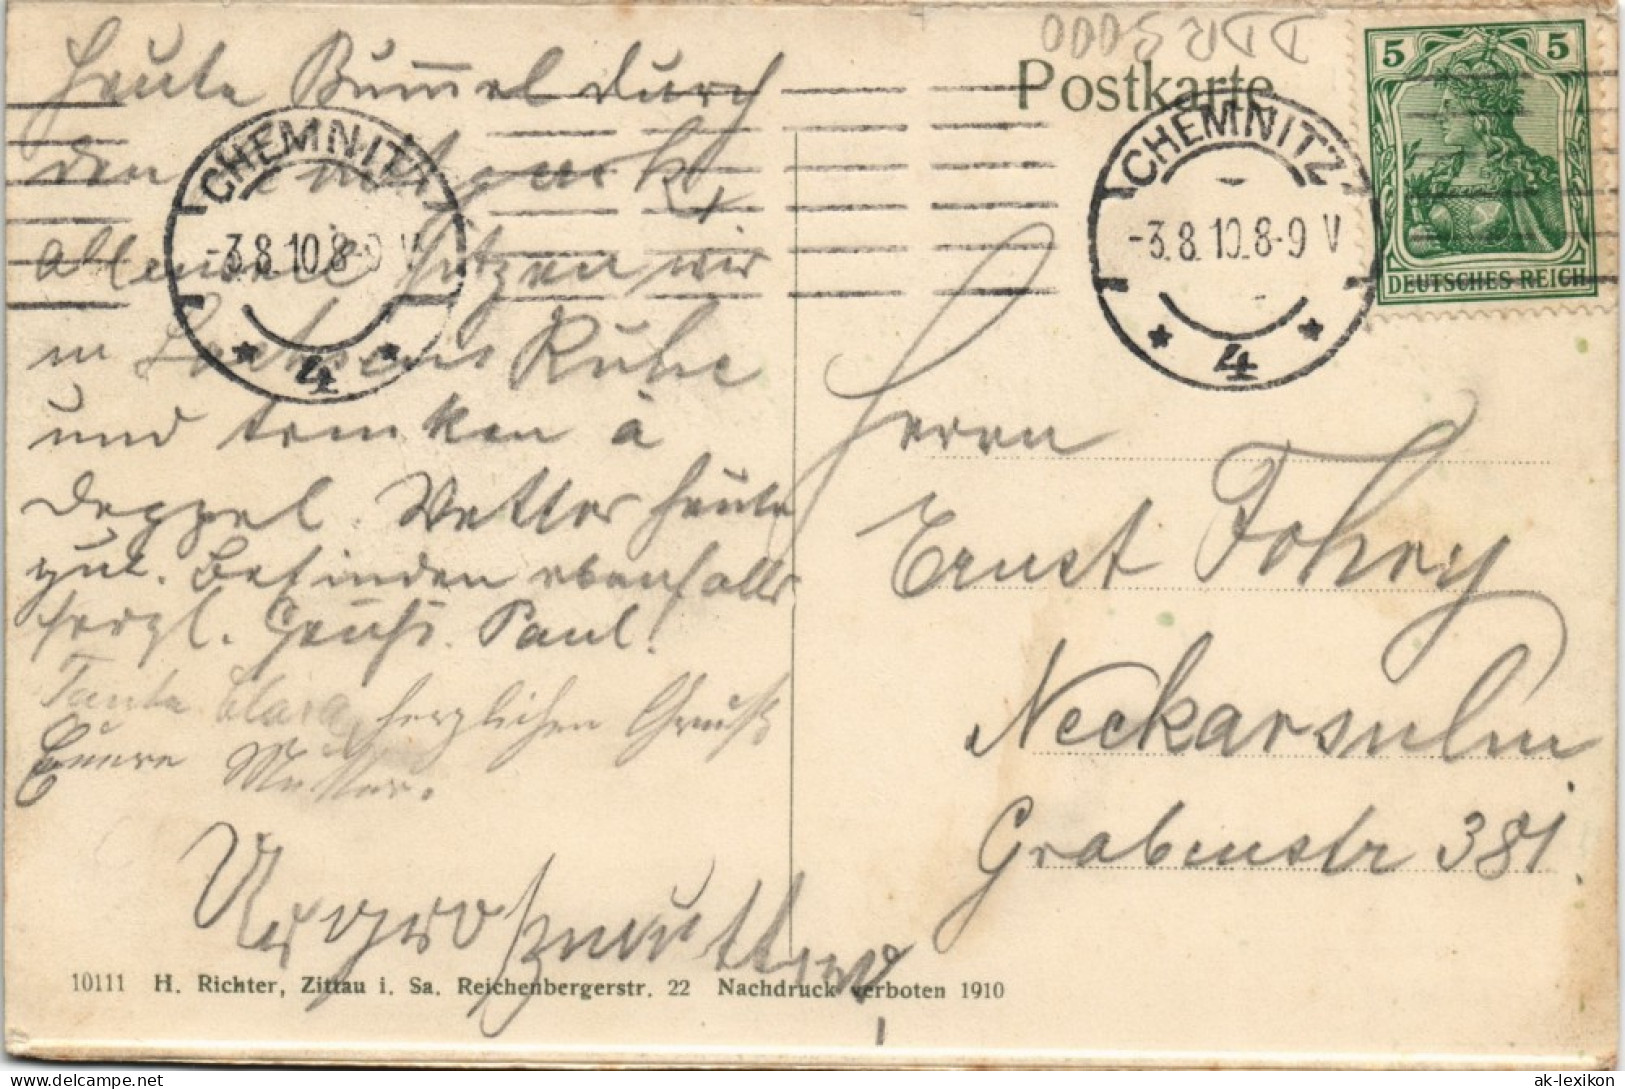 DDR 3000
Postkarte
5 5
DEUTSCHES REICH
CHEMNITZ
-3.8.10.8-9 V
* 4 *
CHEMNITZ
-3.8.10.8-9 V
* 4 *
Heute Bummel durch
den
allweile sitzen wir
in Ruhe
und trinken à
Deppel. Wetter heute
gut. Befinden ebenfalls
herzl. Grüße. Paul.
Tante Clara, herzlichen Gruß
Euere Mutter.
Urgroßmutter
Herrn
Ernst Fohry
Neckarsulm
Grabenstr 381.
10111 H. Richter, Zittau i. Sa. Reichenbergerstr. 22 Nachdruck verboten 1910
delcampe.net
ak-lexikon